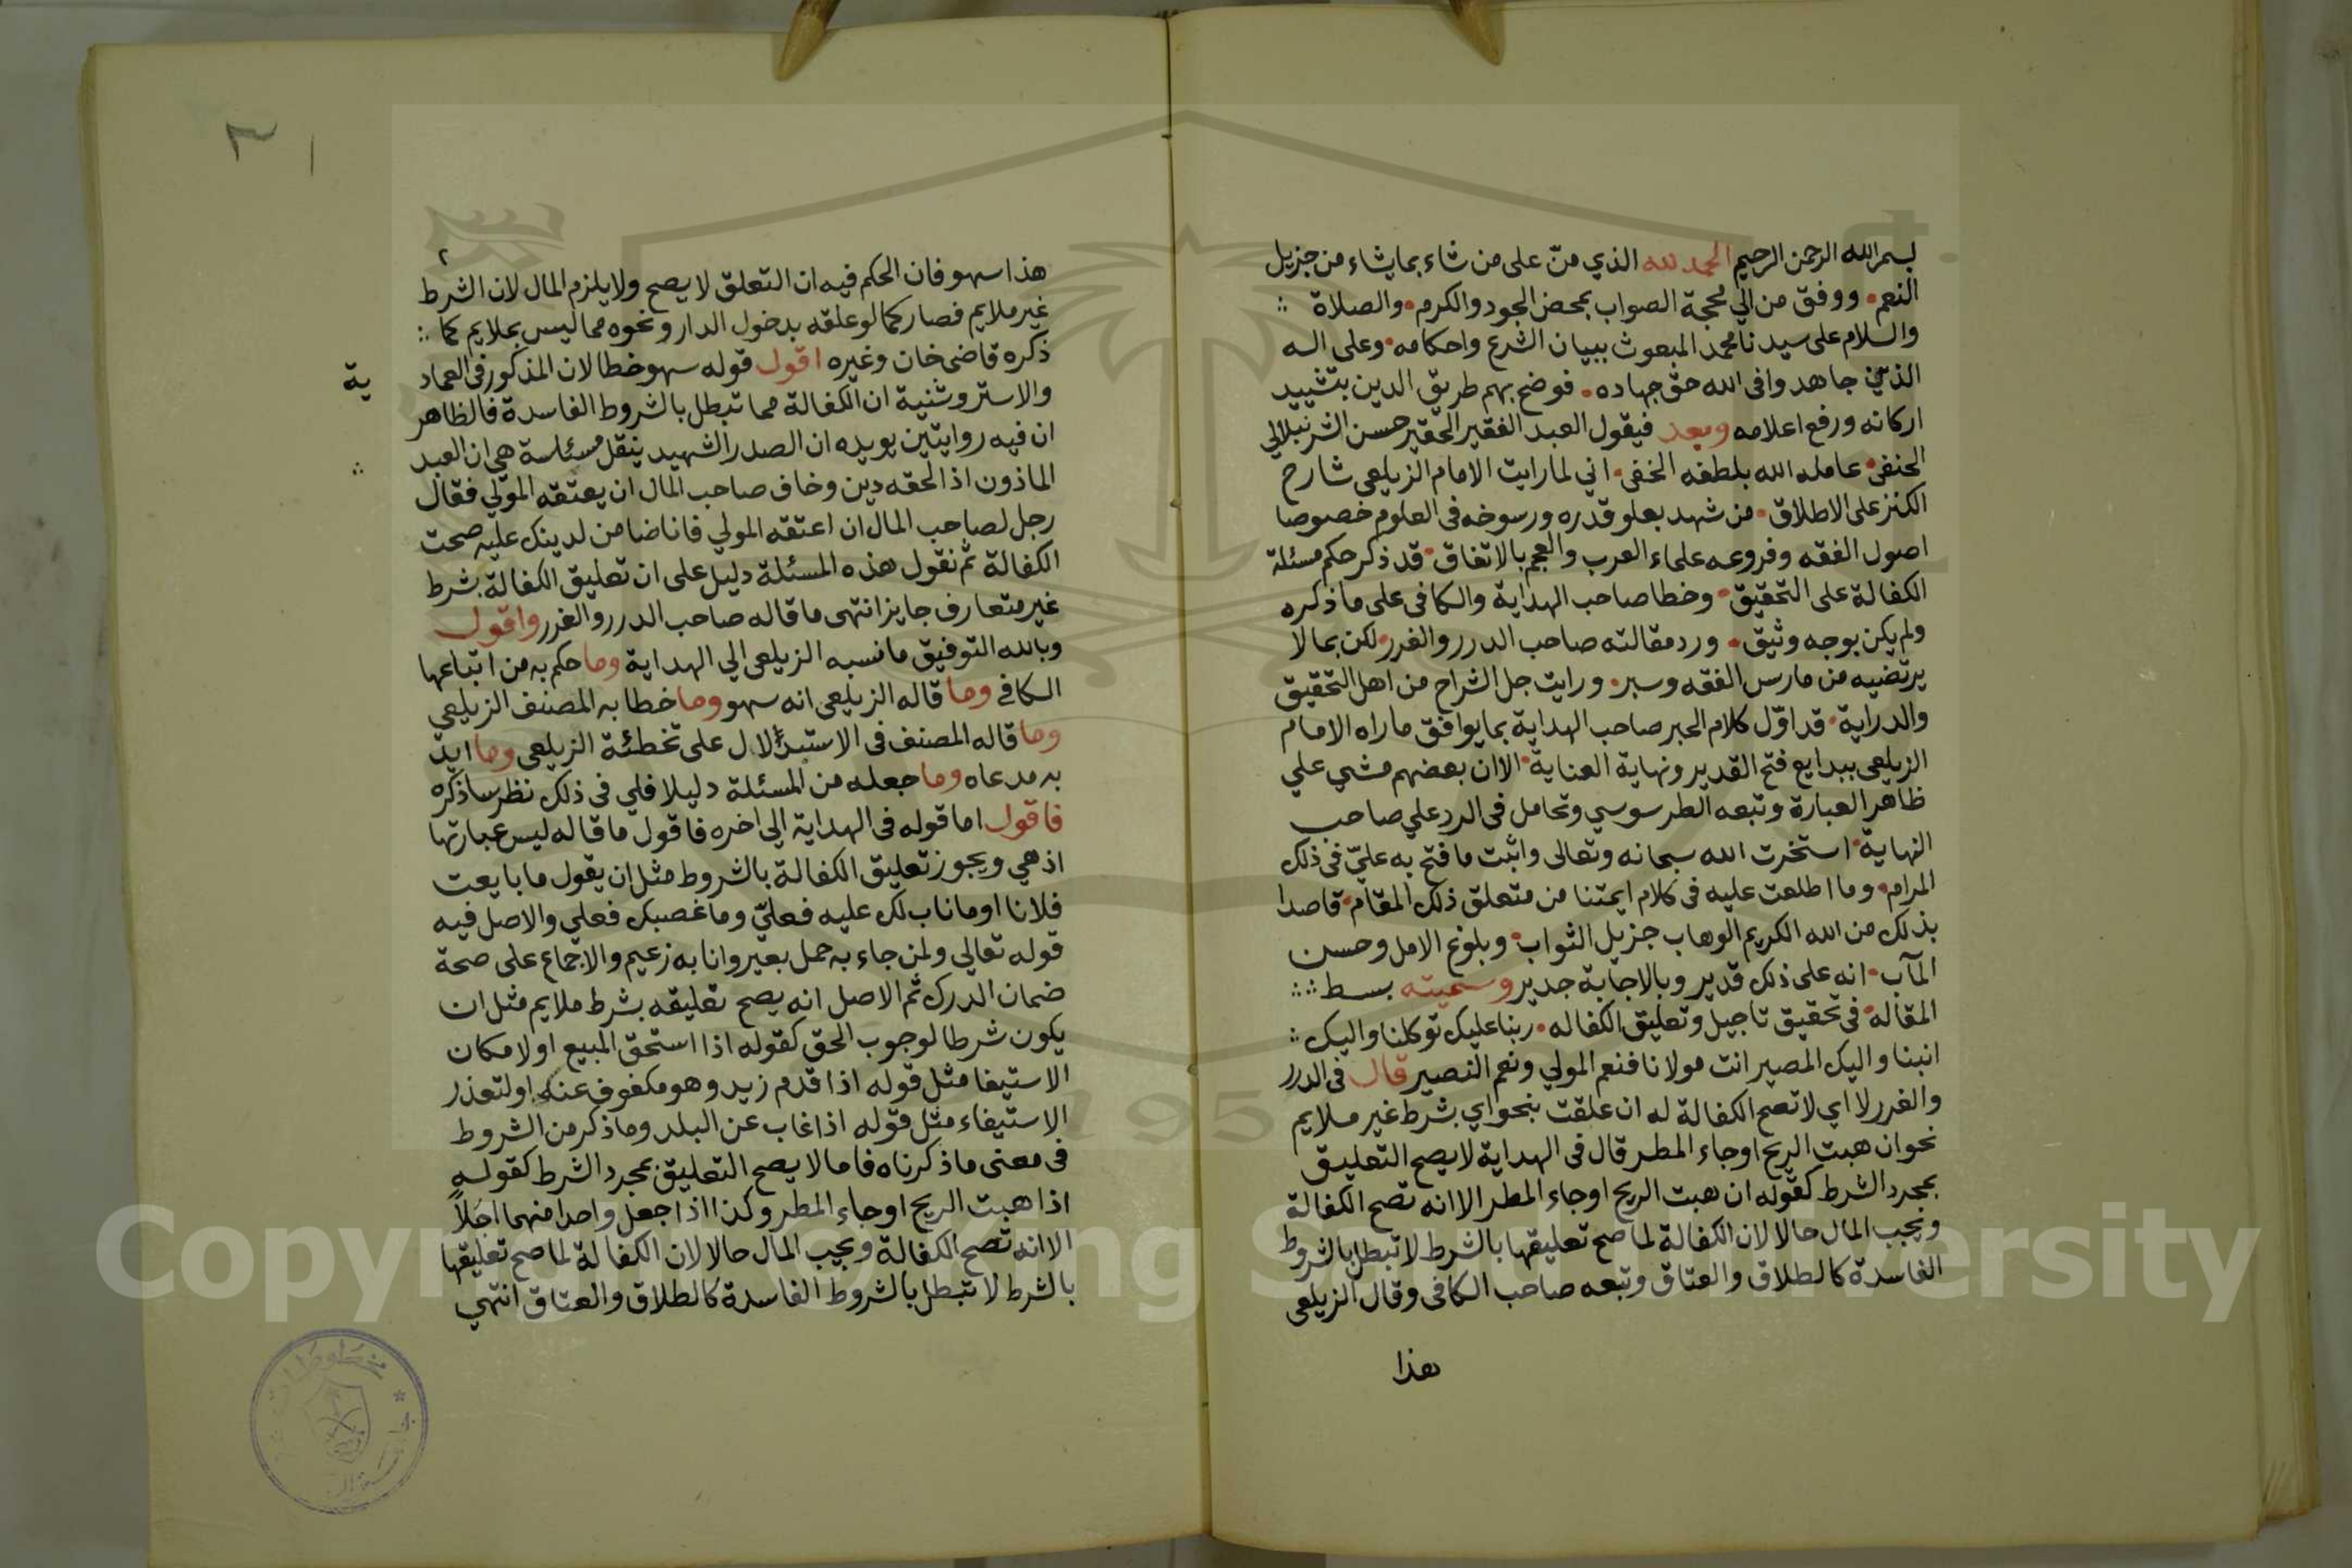 بسم الله الرحمن الرحيم الحمد لله الذي منّ على من شاء بما يشاء من جزيل
النعم. ووفق من الي محجة الصواب بمحض الجود والكرم. والصلاة
والسلام على سيدنا محمد المبعوث ببيان الشرع واحكامه. وعلى اله
الذين جاهدوا في الله حق جهاده. فوضح بهم طريق الدين بتشييد
اركانه ورفع اعلامه وبعد فيقول العبد الفقير الحقير حسن الشرنبلالي
الحنفي. عامله الله بلطفه الخفي. اني لما رايت الامام الزيلعي شارح
الكنز على الاطلاق. من شهد بعلو قدره ورسوخه في العلوم خصوصا
اصول الفقه وفروعه علماء العرب والعجم بالاتفاق. قد ذكر حكم مسئلة
الكفالة على التحقيق. وخطا صاحب الهداية والكافي على ما ذكره
ولم يكن بوجه وثيق. ورد مقالته صاحب الدرر والغرر. لكن بما لا
يرتضيه من مارس الفقه وسبر. ورايت جل الشراح من اهل التحقيق
والدراية. قد اوّل كلام الحبر صاحب الهداية بما يوافق ما راه الامام
الزيلعي ببدايع فتح القدير ونهاية العناية. الا ان بعضهم مشي علي
ظاهر العبارة وتبعه الطرسوسي وتحامل في الرد علي صاحب
النهاية. استخرت الله سبحانه وتعالى واثبت ما فتح به عليّ في ذلك
المرام. وما اطلعت عليه في كلام ايمتنا من متعلق ذلك المقام. قاصدا
بذلك من الله الكريم الوهاب جزيل الثواب. وبلوغ الامل وحسن
المآب. انه على ذلك قدير وبالاجابة جدير وسميته بسط
المقاله. في تحقيق تاجيل وتعليق الكفاله. ربنا عليك توكلنا واليك
انبنا واليك المصير انت مولانا فنعم المولي ونعم النصير قال في الدرر
والغرر لا اي لا تصح الكفالة له ان علقت بنحو اي بشرط غير ملايم
نحو ان هبت الريح او جاء المطر قال في الهداية لا يصح التعليق
بمجرد الشرط كقوله ان هبت الريح او جاء المطر الا انه تصح الكفالة
ويجب المال حالا لان الكفالة لما صح تعليقها بالشرط لا تبطل بالشروط
الفاسدة كالطلاق والعتاق وتبعه صاحب الكافي وقال الزيلعي
هذا
٢
هذا سهو فان الحكم فيه ان التعلق لا يصح ولا يلزم المال لان الشرط
غير ملايم فصار كما لو علقه بدخول الدار ونحوه مما ليس بملايم كما
ذكره قاضي خان وغيره اقول قوله سهو خطا لان المذكور في العماد
ية
والاستروشنية ان الكفالة مما تبطل بالشروط الفاسدة فالظاهر
ان فيه روايتين يويده ان الصدر الشهيد ينقل مسئلسة هي ان العبد
الماذون اذا لحقه دين وخاف صاحب المال ان يعتقه المولي فقال
رجل لصاحب المال ان اعتقه المولي فانا ضامن لدينك عليه صحت
الكفالة ثم نقول هذه المسئلة دليل على ان تعليق الكفالة بشرط
غير متعارف جايز انتهى ما قاله صاحب الدرر والغرر واقول
وبالله التوفيق ما نسبه الزيلعي الي الهداية وما حكم به من اتباعها
الكافي وما قاله الزيلعي انه سهو وما خطا به المصنف الزيلعي
وما قاله المصنف في الاستدلال على تخطئة الزيلعي وما ايد
به مدعاه وما جعله من المسئلة دليلا فلي في ذلك نظر ساذكره
فاقول اما قوله في الهداية الى اخره فاقول ما قاله ليس عبارتها
اذ هي ويجوز تعليق الكفالة بالشروط مثل ان يقول ما بايعت
فلانا او ما ناب لك عليه فعليّ وما غصبك فعلي والاصل فيه
قوله تعالي ولمن جاء به حمل بعير وانا به زعيم والاجماع على صحة
ضمان الدرك ثم الاصل انه يصح تعليقه بشرط ملايم مثل ان
يكون شرطا لوجوب الحق كقوله اذا استحق المبيع او لامكان
الاستيفا مثل قوله اذا قدم زيد وهو مكفوف عنه او لتعذر
الاستيفاء مثل قوله اذا غاب عن البلد وما ذكر من الشروط
في معنى ما ذكرناه فاما لا يصح التعليق بمجرد الشرط كقوله
اذا هبت الريح او جاء المطر وكذا اذا جعل واحدا منهما اجلاً
الا انه تصح الكفالة ويجب المال حالا لان الكفالة لما صح تعليقها
بالشرط لا تبطل بالشروط الفاسدة كالطلاق والعتاق انتهي
Copyright © King Saud University
1957